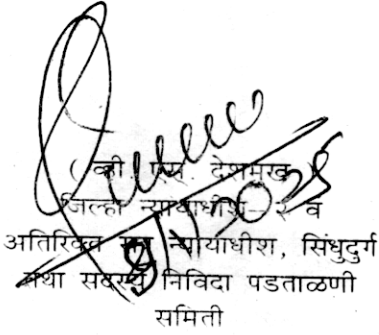 ( व्ही. एस. देशमुख )
जिल्हा न्यायाधीश - २ व
अतिरिक्त सत्र न्यायाधीश, सिंधुदुर्ग
तथा सदस्य निविदा पडताळणी
समिती